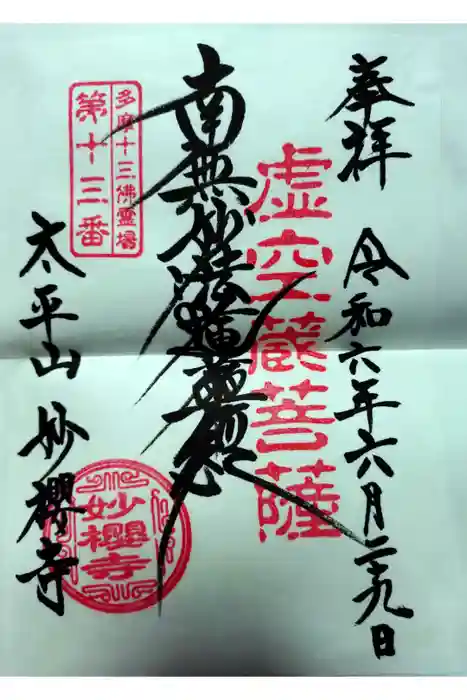 奉拝
令和六年六月二十九日
虚空蔵菩薩
南無妙法蓮華経
多摩十三佛霊場
第十三番
太平山 妙櫻寺
妙櫻寺